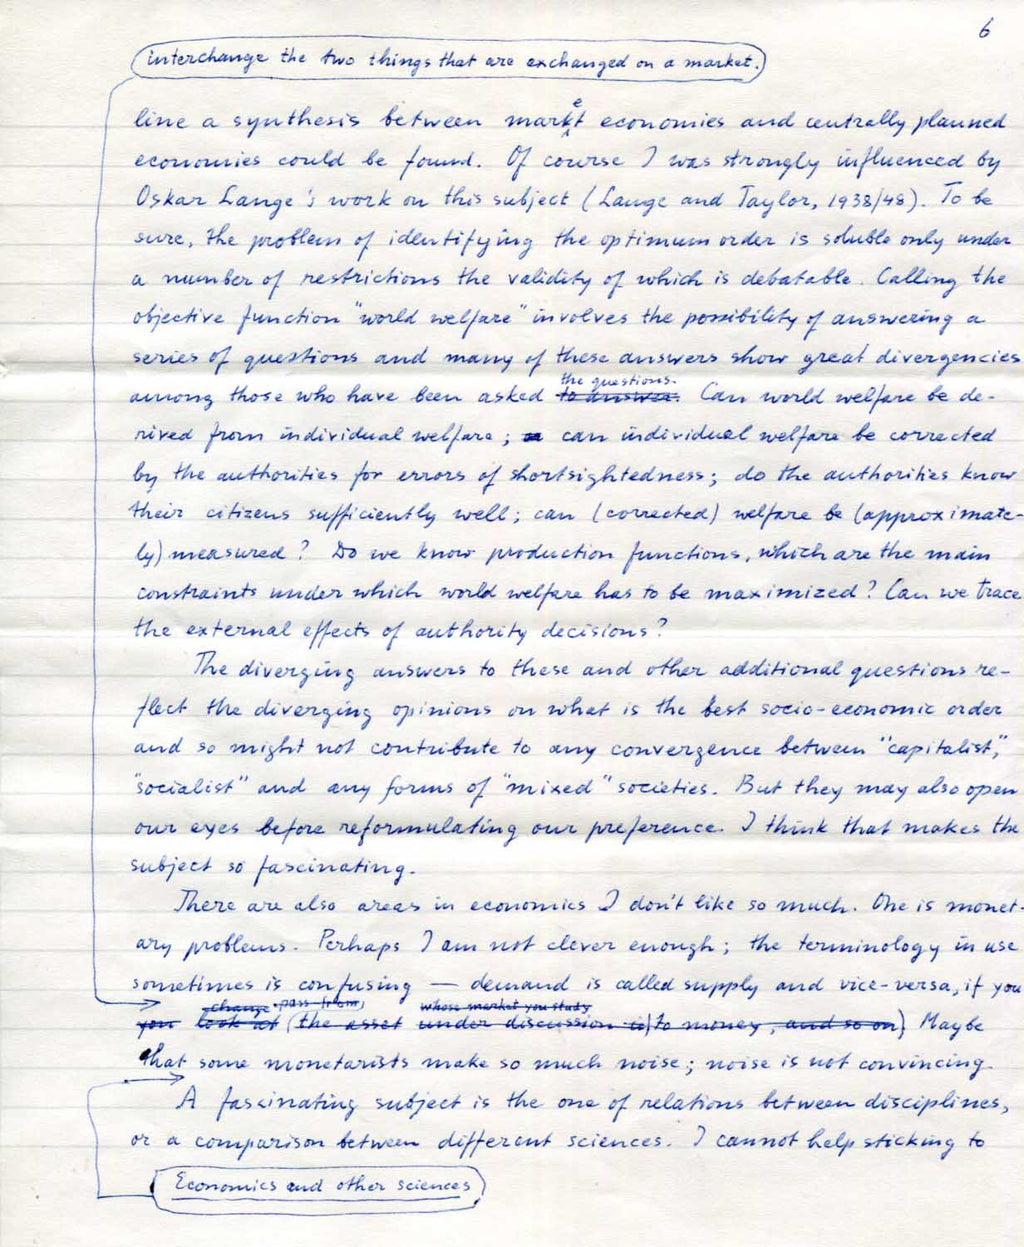 6
interchange the two things that are exchanged on a market.
line a synthesis between market economies and centrally planned
economies could be found. Of course I was strongly influenced by
Oskar Lange's work on this subject (Lange and Taylor, 1938/48). To be
sure, the problem of identifying the optimum order is soluble only under
a number of restrictions the validity of which is debatable. Calling the
objective function "world welfare" involves the possibility of answering a
series of questions and many of these answers show great divergencies
the questions.
among those who have been asked to answer. Can world welfare be de-
rived from individual welfare; can individual welfare be corrected
by the authorities for errors of shortsightedness; do the authorities know
their citizens sufficiently well; can (corrected) welfare be (approximate-
ly) measured? Do we know production functions, which are the main
constraints under which world welfare has to be maximized? Can we trace
the external effects of authority decisions?
The diverging answers to these and other additional questions re-
flect the diverging opinions on what is the best socio-economic order
and so might not contribute to any convergence between "capitalist,"
"socialist" and any forms of "mixed" societies. But they may also open
our eyes before reformulating our preference. I think that makes the
subject so fascinating.
There are also areas in economics I don't like so much. One is monet-
ary problems. Perhaps I am not clever enough; the terminology in use
sometimes is confusing — demand is called supply and vice-versa, if you
change pass from whose market you study
you look at (the asset under discussion is) to money, and so on) Maybe
that some monetarists make so much noise; noise is not convincing.
A fascinating subject is the one of relations between disciplines,
or a comparison between different sciences. I cannot help sticking to
Economics and other sciences